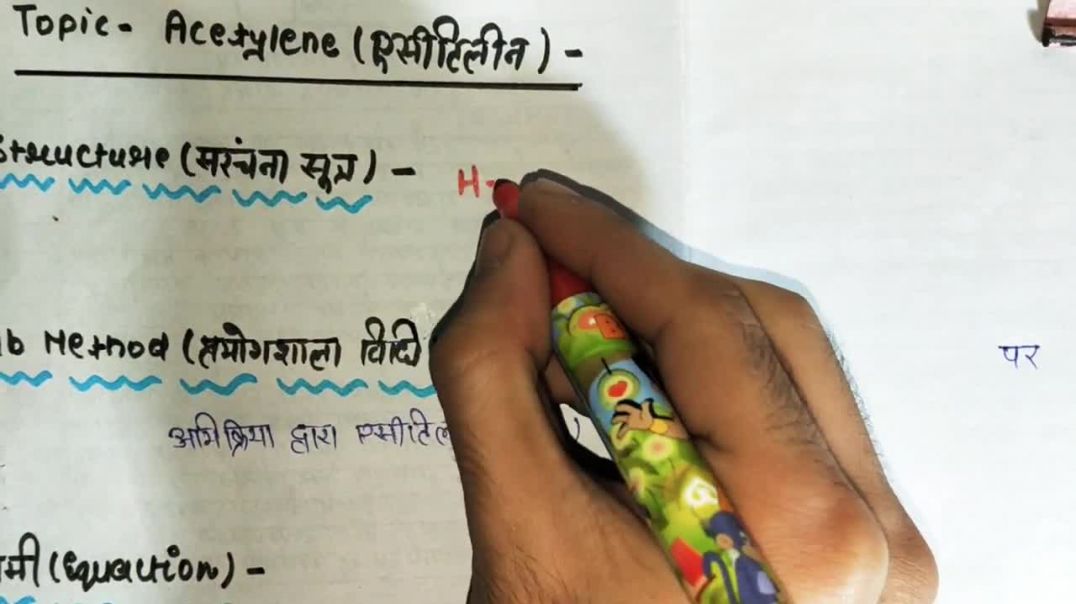 Topic- Acetylene (एसीटिलीन) -
Structure (सरंचना सूत्र) -
H-
ab Method (प्रयोगशाला विधि
पर
अभिक्रिया द्वारा एसीटिल
मी (Equation) -